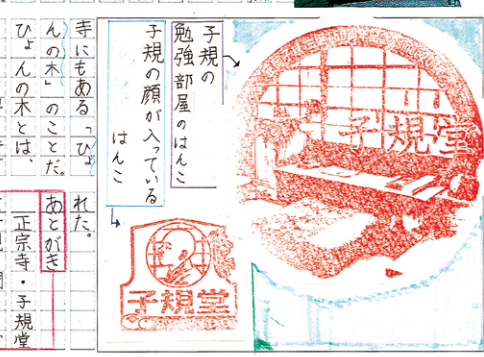 子規の
勉強部屋のはんこ
子規の顔が入っている
はんこ
子規堂
子規堂
寺にもある「ひょ
んの木」のことだ。
ひょんの木とは、
れた。
あとがき
正宗寺・子規堂